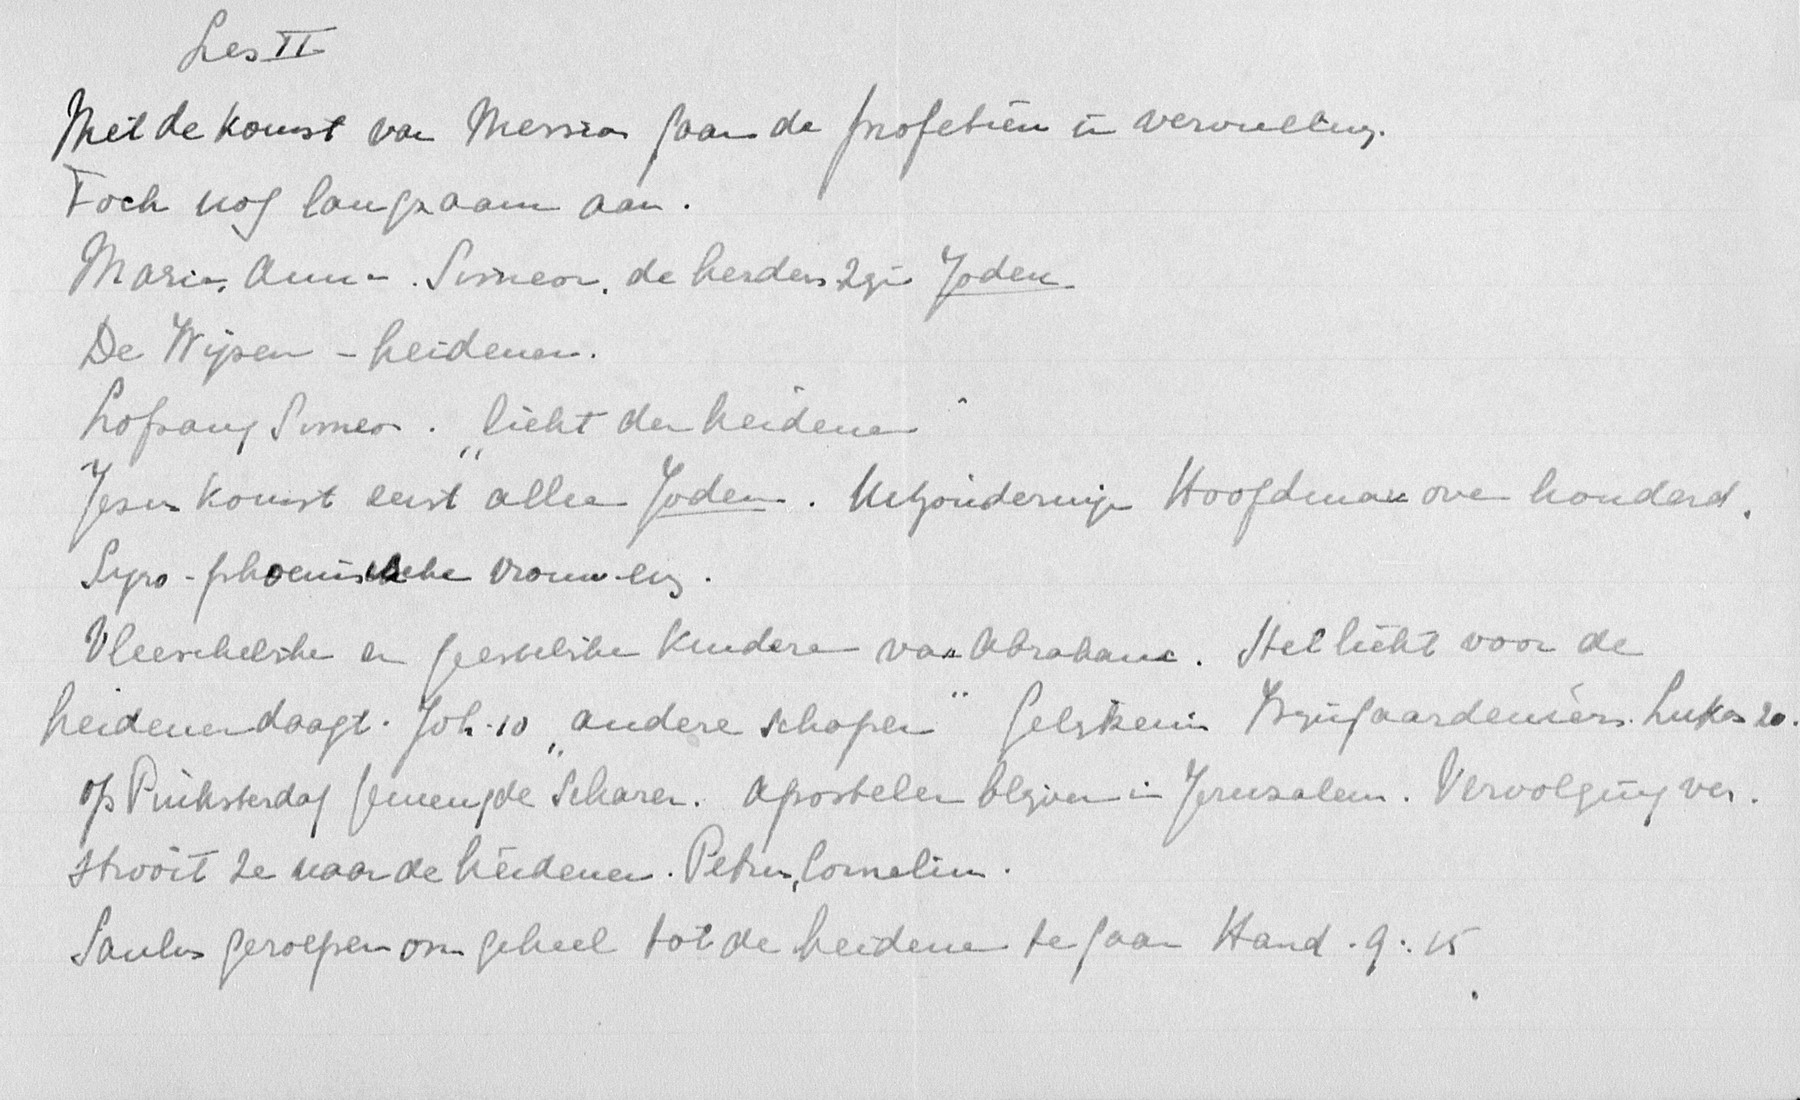 Les II
Met de komst van Messias gaan de profetiën in vervulling.
Toch nog langzaam aan.
Maria, Anna. Simeon. de herders zijn Joden
De Wijzen - heidenen.
Lofzang Simeon. „licht der heidenen"
Jezus komst eerst alleen Joden. Uitzonderingen Hoofdman over honderd.
Syro-phoenische vrouw enz.
Vleeschelijke en geestelijke kinderen van Abraham. Het licht voor de
heidenen daagt. Joh. 10 „andere schapen" Gelijkenis Wijngaardeniers. Lukas 20.
op Pinksterdag gemengde scharen. Apostelen blijven in Jeruzalem. Vervolging ver.
strooit ze naar de heidenen. Petrus, Cornelius.
Saulus geroepen om geheel tot de heidenen te gaan Hand. 9:15